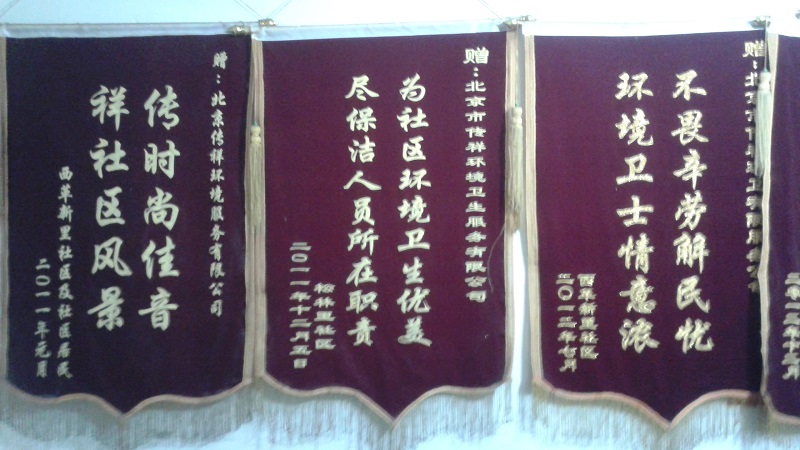 赠：北京传祥环境服务有限公司
传时尚佳音
祥社区风景
西革新里社区及社区居民
二〇一一年元月
赠：北京市传祥环境卫生服务有限公司
为社区环境卫生优美
尽保洁人员所在职责
松林里社区
二〇一一年十二月五日
赠：北京市传祥环境卫生服务有限公司
不畏辛劳解民忧
环境卫士情意浓
西革新里社区
二〇一二年七月